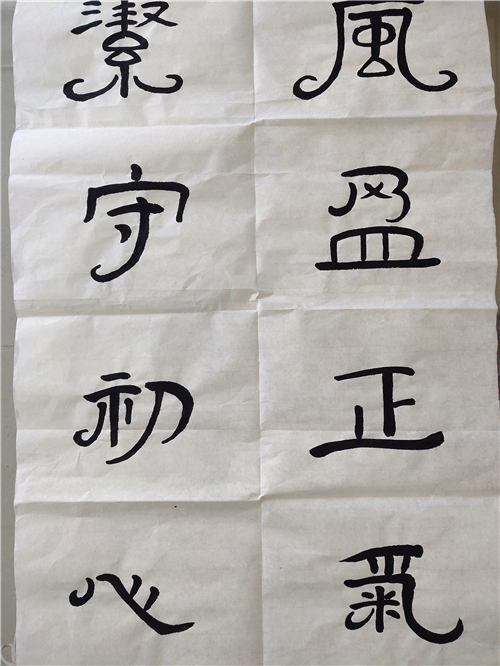 風盈正氣
潔守初心